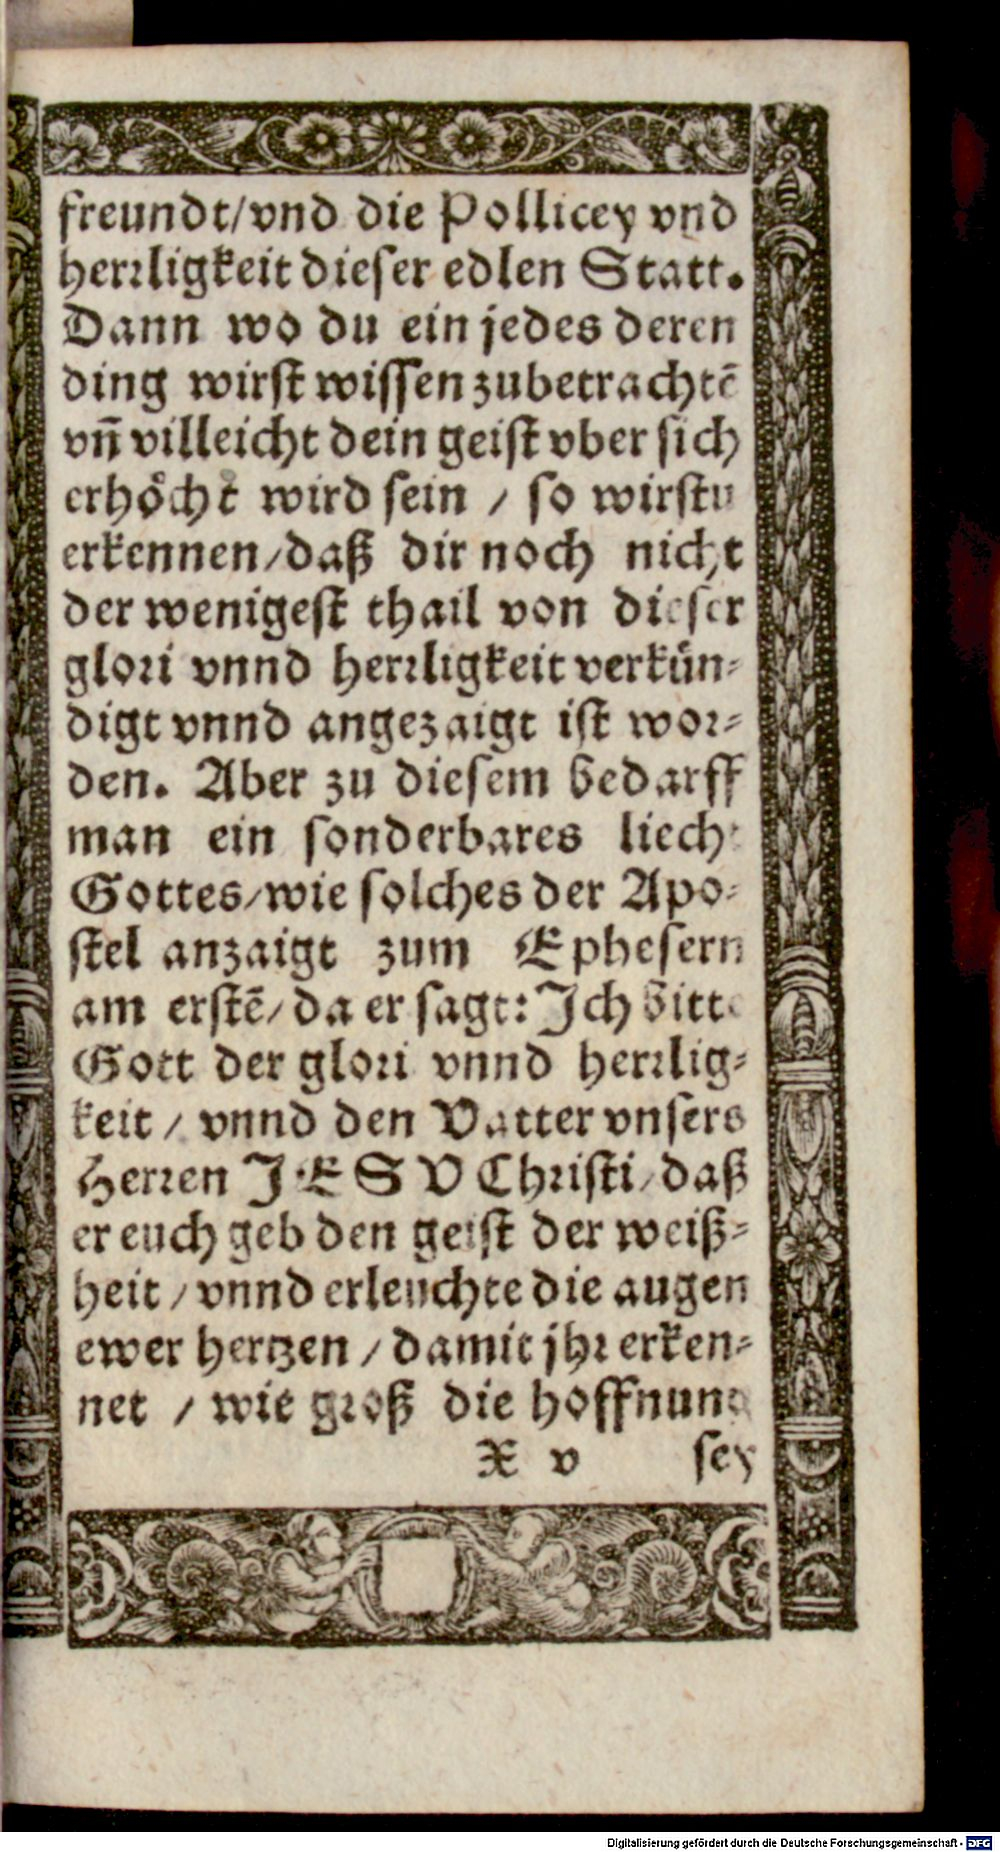 freundt/vnd die Pollicey vnd
herrligkeit dieser edlen Statt.
Dann wo du ein jedes deren
ding wirst wissen zubetrachtē
vn̄ villeicht dein geist vber sich
erhoͤcht wird sein / so wirstu
erkennen/daß dir noch nicht
der wenigest thail von dieser
glori vnnd herrligkeit verkün-
digt vnnd angezaigt ist wor-
den. Aber zu diesem bedarff
man ein sonderbares liecht
Gottes/wie solches der Apo-
stel anzaigt zum Ephesern
am erstē/da er sagt: Ich bitte
Gott der glori vnnd herrlig-
keit / vnnd den Vatter vnsers
Herren JESV Christi/daß
er euch geb den geist der weiß-
heit / vnnd erleuchte die augen
ewer hertzen / damit jhr erken-
net / wie groß die hoffnung
X v sey
Digitalisierung gefördert durch die Deutsche Forschungsgemeinschaft - DFG